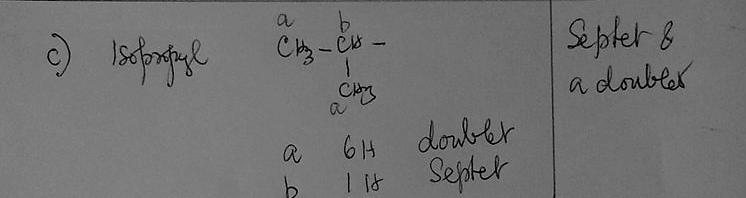 a b
c) Isopropyl CH3 - CH - Septet &
| a doublet
CH3
a
a 6H doublet
b 1H Septet